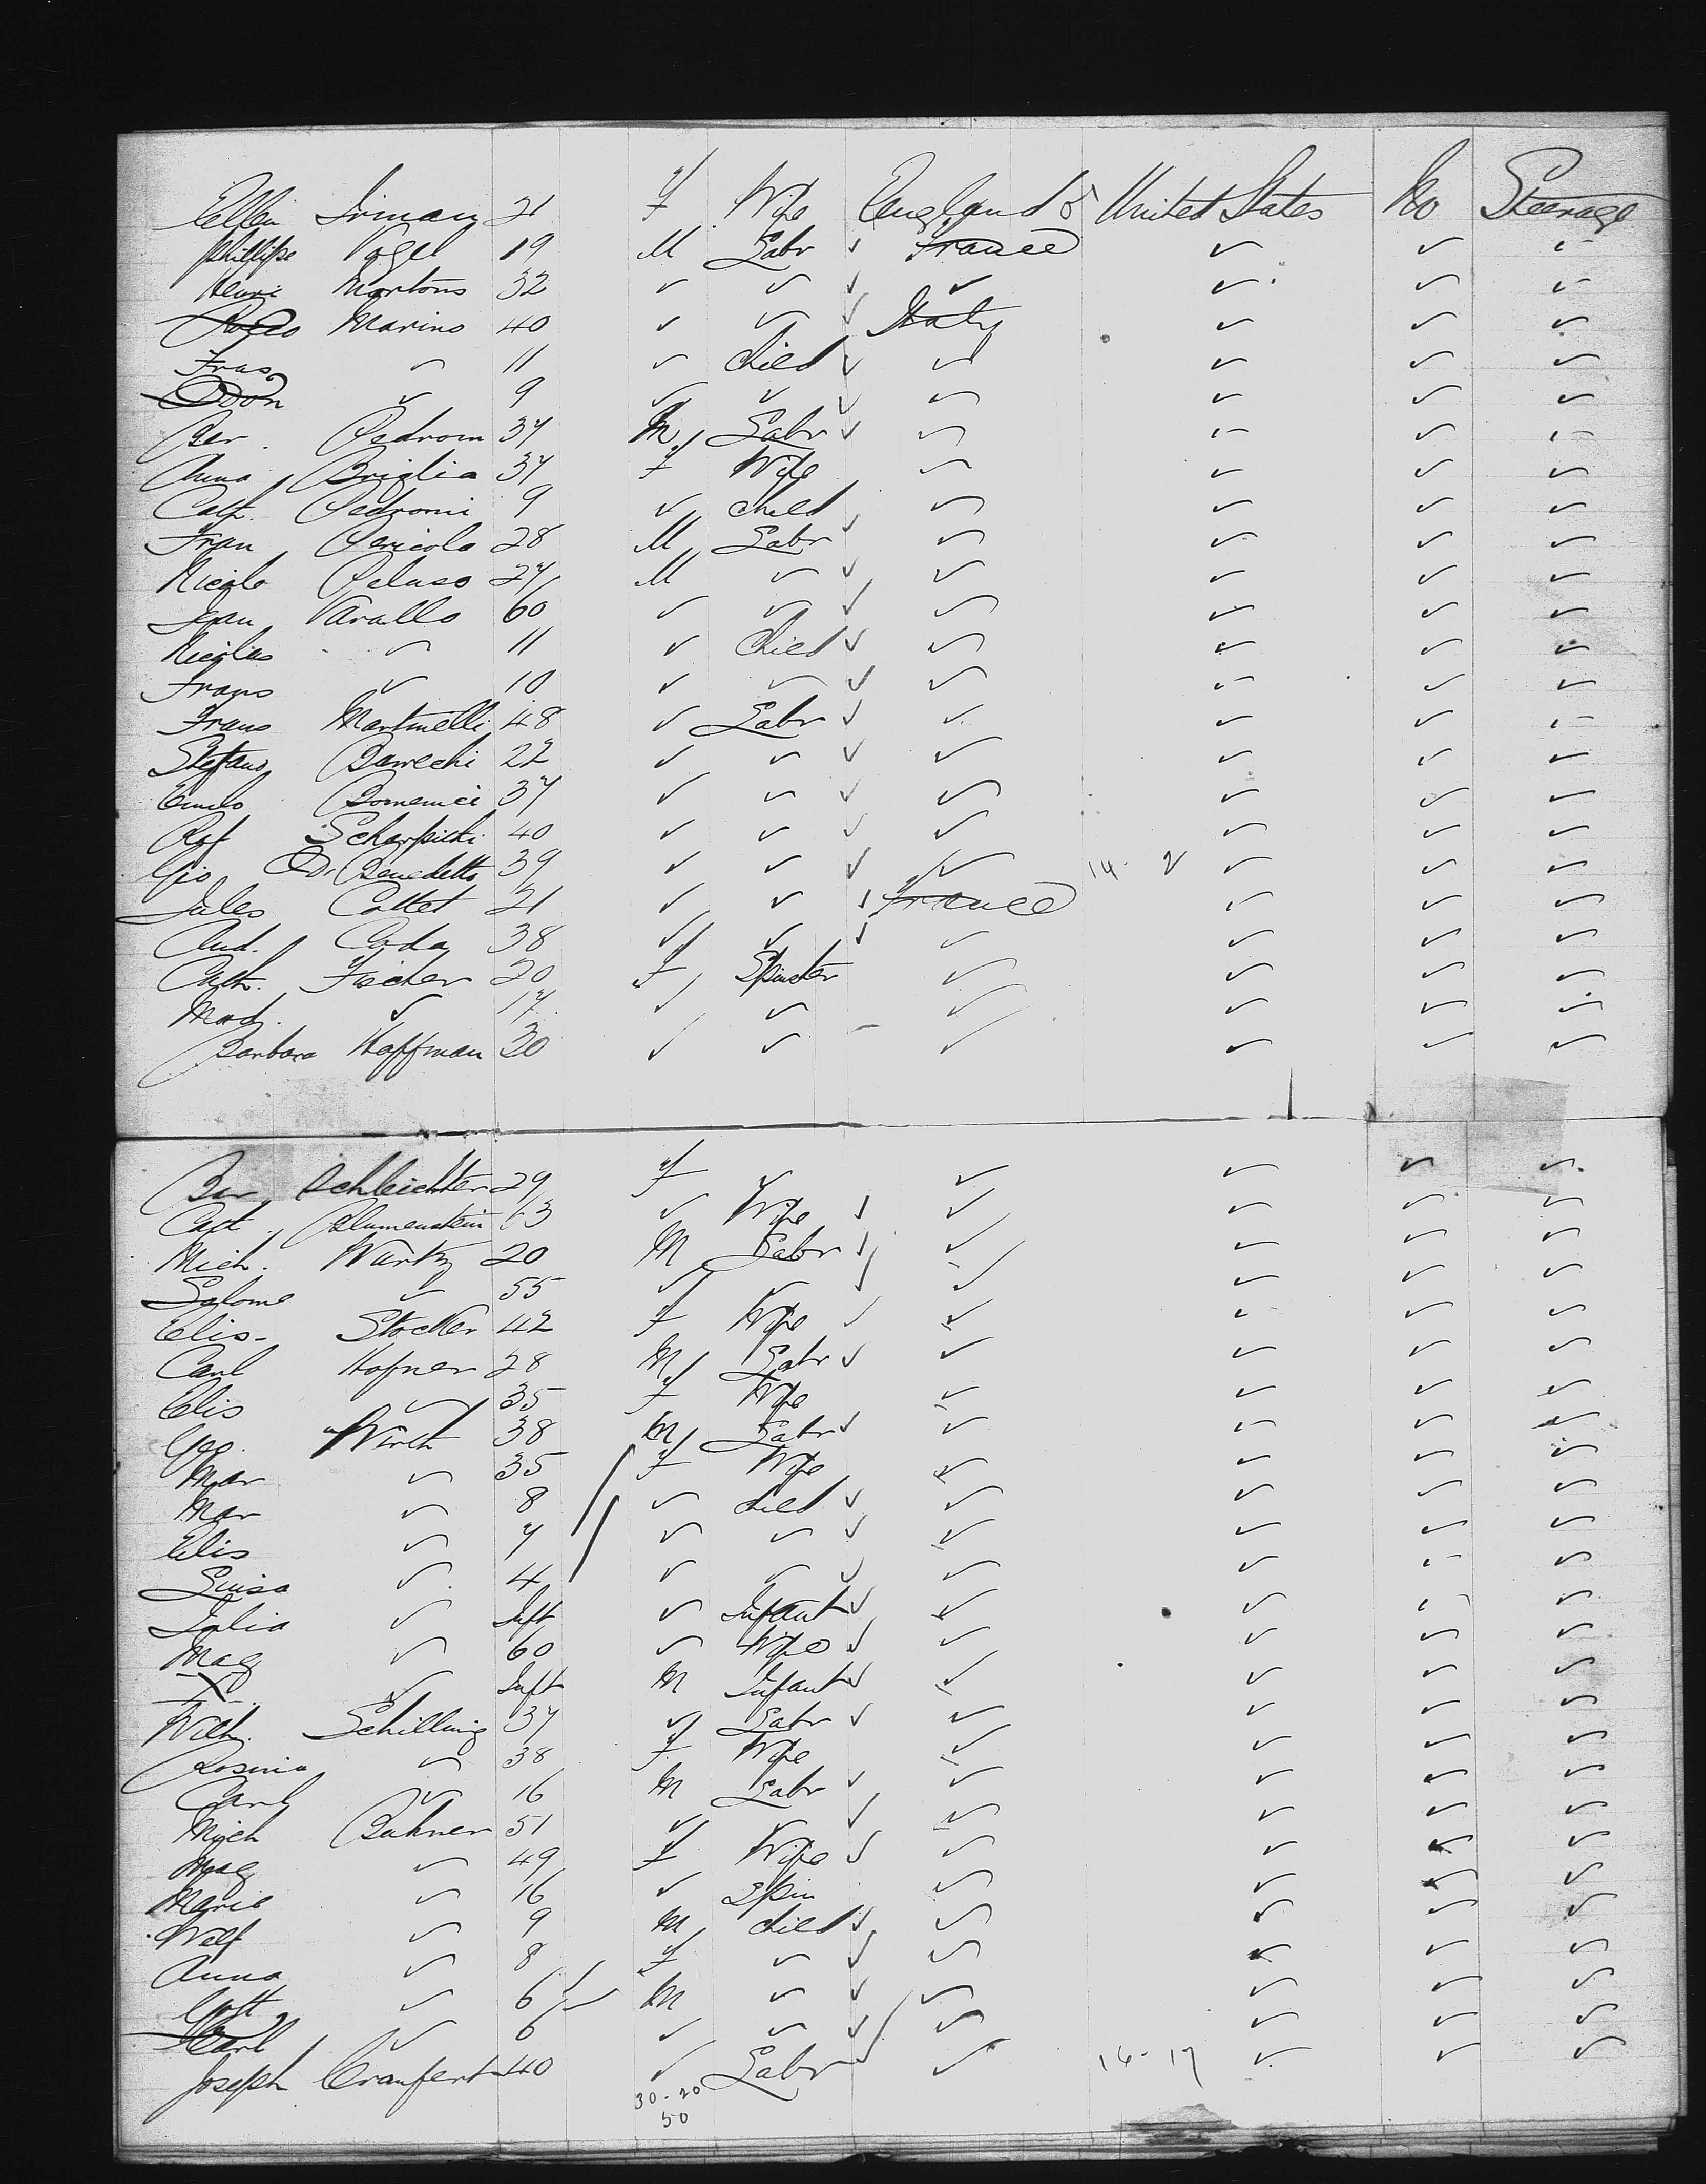 Ellen Irman 21 f Wife England & United States No Steerage
Phillipe Vogel 19 M Labr ✓ France ✓ ✓ ✓
Henri Martons 32 ✓ ✓ ✓ ✓ ✓ ✓ ✓
Rocco Marino 40 ✓ ✓ ✓ Italy ✓ ✓ ✓
Fras ✓ 11 ✓ Child ✓ ✓ ✓ ✓ ✓
Don ✓ 9 ✓ ✓ ✓ ✓ ✓ ✓ ✓
Ber. Pedroni 37 M Labr ✓ ✓ ✓ ✓ ✓
Anna Briglia 37 f Wife ✓ ✓ ✓ ✓
Cath. Pedromi 9 ✓ Child ✓ ✓ ✓ ✓
Fran Pericola 28 M Labr ✓ ✓ ✓ ✓ ✓
Nicola Peluso 27 M ✓ ✓ ✓ ✓ ✓ ✓
Jean Varallo 60 ✓ ✓ ✓ ✓ ✓ ✓ ✓
Nicolas ✓ 11 ✓ Child ✓ ✓ ✓ ✓ ✓
Frans ✓ 10 ✓ ✓ ✓ ✓ ✓ ✓ ✓
Frans Martinelli 48 ✓ Labr ✓ ✓ ✓ ✓ ✓
Stefano Barrechi 22 ✓ ✓ ✓ ✓ ✓ ✓ ✓
Emilo Domenici 37 ✓ ✓ ✓ ✓ ✓ ✓ ✓
Raf Scharpichi 40 ✓ ✓ ✓ ✓ ✓ ✓ ✓
Gio Di Benedetto 39 ✓ ✓ ✓ ✓ 14 - 2 ✓ ✓ ✓
Jules Cottet 21 ✓ ✓ ✓ France ✓ ✓ ✓
And. Cada 38 ✓ ✓ ✓ ✓ ✓ ✓ ✓
Cath. Fischer 20 f Spinster ✓ ✓ ✓ ✓
Mad. ✓ 17 ✓ ✓ ✓ ✓ ✓ ✓
Barbara Hoffman 30 ✓ ✓ - ✓ ✓ ✓ ✓
Bar Schleichter 29 f ✓ ✓ ✓ ✓ ✓
Cat. Blumenstein 63 ✓ Wife ✓ ✓ ✓ ✓ ✓
Mich. Wurtz 20 M Labr ✓ ✓ ✓ ✓ ✓
Salome ✓ 55 ✓ ✓ ✓ ✓ ✓ ✓ ✓
Elis- Stocker 42 f Wife ✓ ✓ ✓ ✓ ✓
Carl Hofner 28 M Labr ✓ ✓ ✓ ✓ ✓
Elis ✓ 35 f Wife ✓ ✓ ✓ ✓
Geo. Wirth 38 M Labr ✓ ✓ ✓ ✓ ✓
Mar ✓ 35 f Wife ✓ ✓ ✓ ✓
Mar ✓ 8 ✓ Child ✓ ✓ ✓ ✓ ✓
Elis ✓ 7 ✓ ✓ ✓ ✓ ✓ ✓ ✓
Luisa ✓ 4 ✓ ✓ ✓ ✓ ✓ ✓ ✓
Julia ✓ Inft ✓ Infant ✓ ✓ ✓ ✓ ✓
Mag ✓ 60 ✓ Wife ✓ ✓ ✓ ✓ ✓
-X- ✓ Inft M Infant ✓ ✓ ✓ ✓ ✓
Wilh. Schilling 37 ✓ Labr ✓ ✓ ✓ ✓ ✓
Rosina ✓ 38 f Wife ✓ ✓ ✓ ✓
Carl ✓ 16 M Labr ✓ ✓ ✓ ✓ ✓
Mich Buhner 51 ✓ ✓ ✓ ✓ ✓ ✓ ✓
Mag ✓ 49 f Wife ✓ ✓ ✓ ✓ ✓
Marie ✓ 16 ✓ Spin ✓ ✓ ✓ ✓
Wilf ✓ 9 M Child ✓ ✓ ✓ ✓ ✓
Anna ✓ 8 f ✓ ✓ ✓ ✓ ✓ ✓
Gott ✓ 6 M ✓ ✓ ✓ ✓ ✓ ✓
Carl ✓ 6 ✓ ✓ ✓ ✓ ✓ ✓ ✓
Joseph Cranfert 40 ✓ Labr ✓ ✓ 16 - 17 ✓ ✓ ✓
30 - 20
50